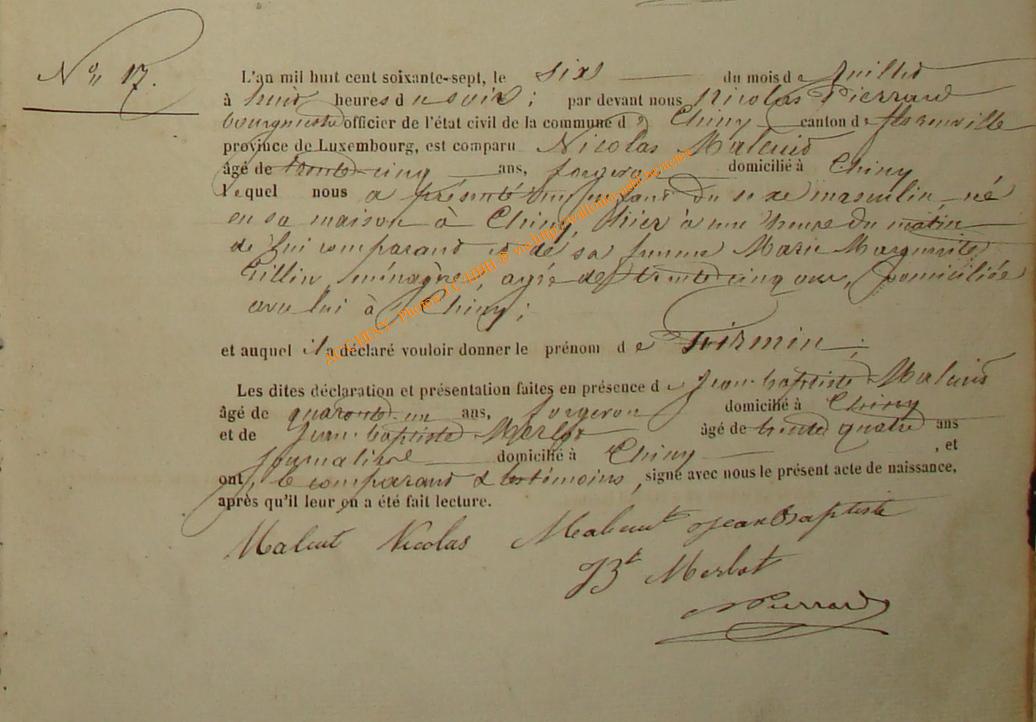 N° 17.
L'an mil huit cent soixante-sept, le six du mois de Juillet
à huit heures du soir ; par devant nous Nicolas Pierrard
bourgmestre officier de l'état civil de la commune de Chiny canton de Florenville
province de Luxembourg, est comparu Nicolas Malcuit
âgé de trente-cinq ans, forgeron domicilié à Chiny
Lequel nous a présenté un enfant du sexe masculin, né
en sa maison à Chiny, hier à une heure du matin
de lui comparant et de sa femme Marie Marguerite
Gillin, ménagère, agée de trente cinq ans, domiciliée
avec lui à Chiny ;
et auquel il a déclaré vouloir donner le prénom de Firmin ;
Les dites déclaration et présentation faites en présence de Jean-baptiste Malcuit
âgé de quarante un ans, forgeron domicilié à Chiny
et de Jean-baptiste Merlot âgé de trente quatre ans
journalier domicilié à Chiny , et
ont, le comparant et les témoins, signé avec nous le présent acte de naissance,
après qu'il leur en a été fait lecture.
Malcuit Nicolas Malcuit Jean Baptiste
JBt Merlot
NPierrard